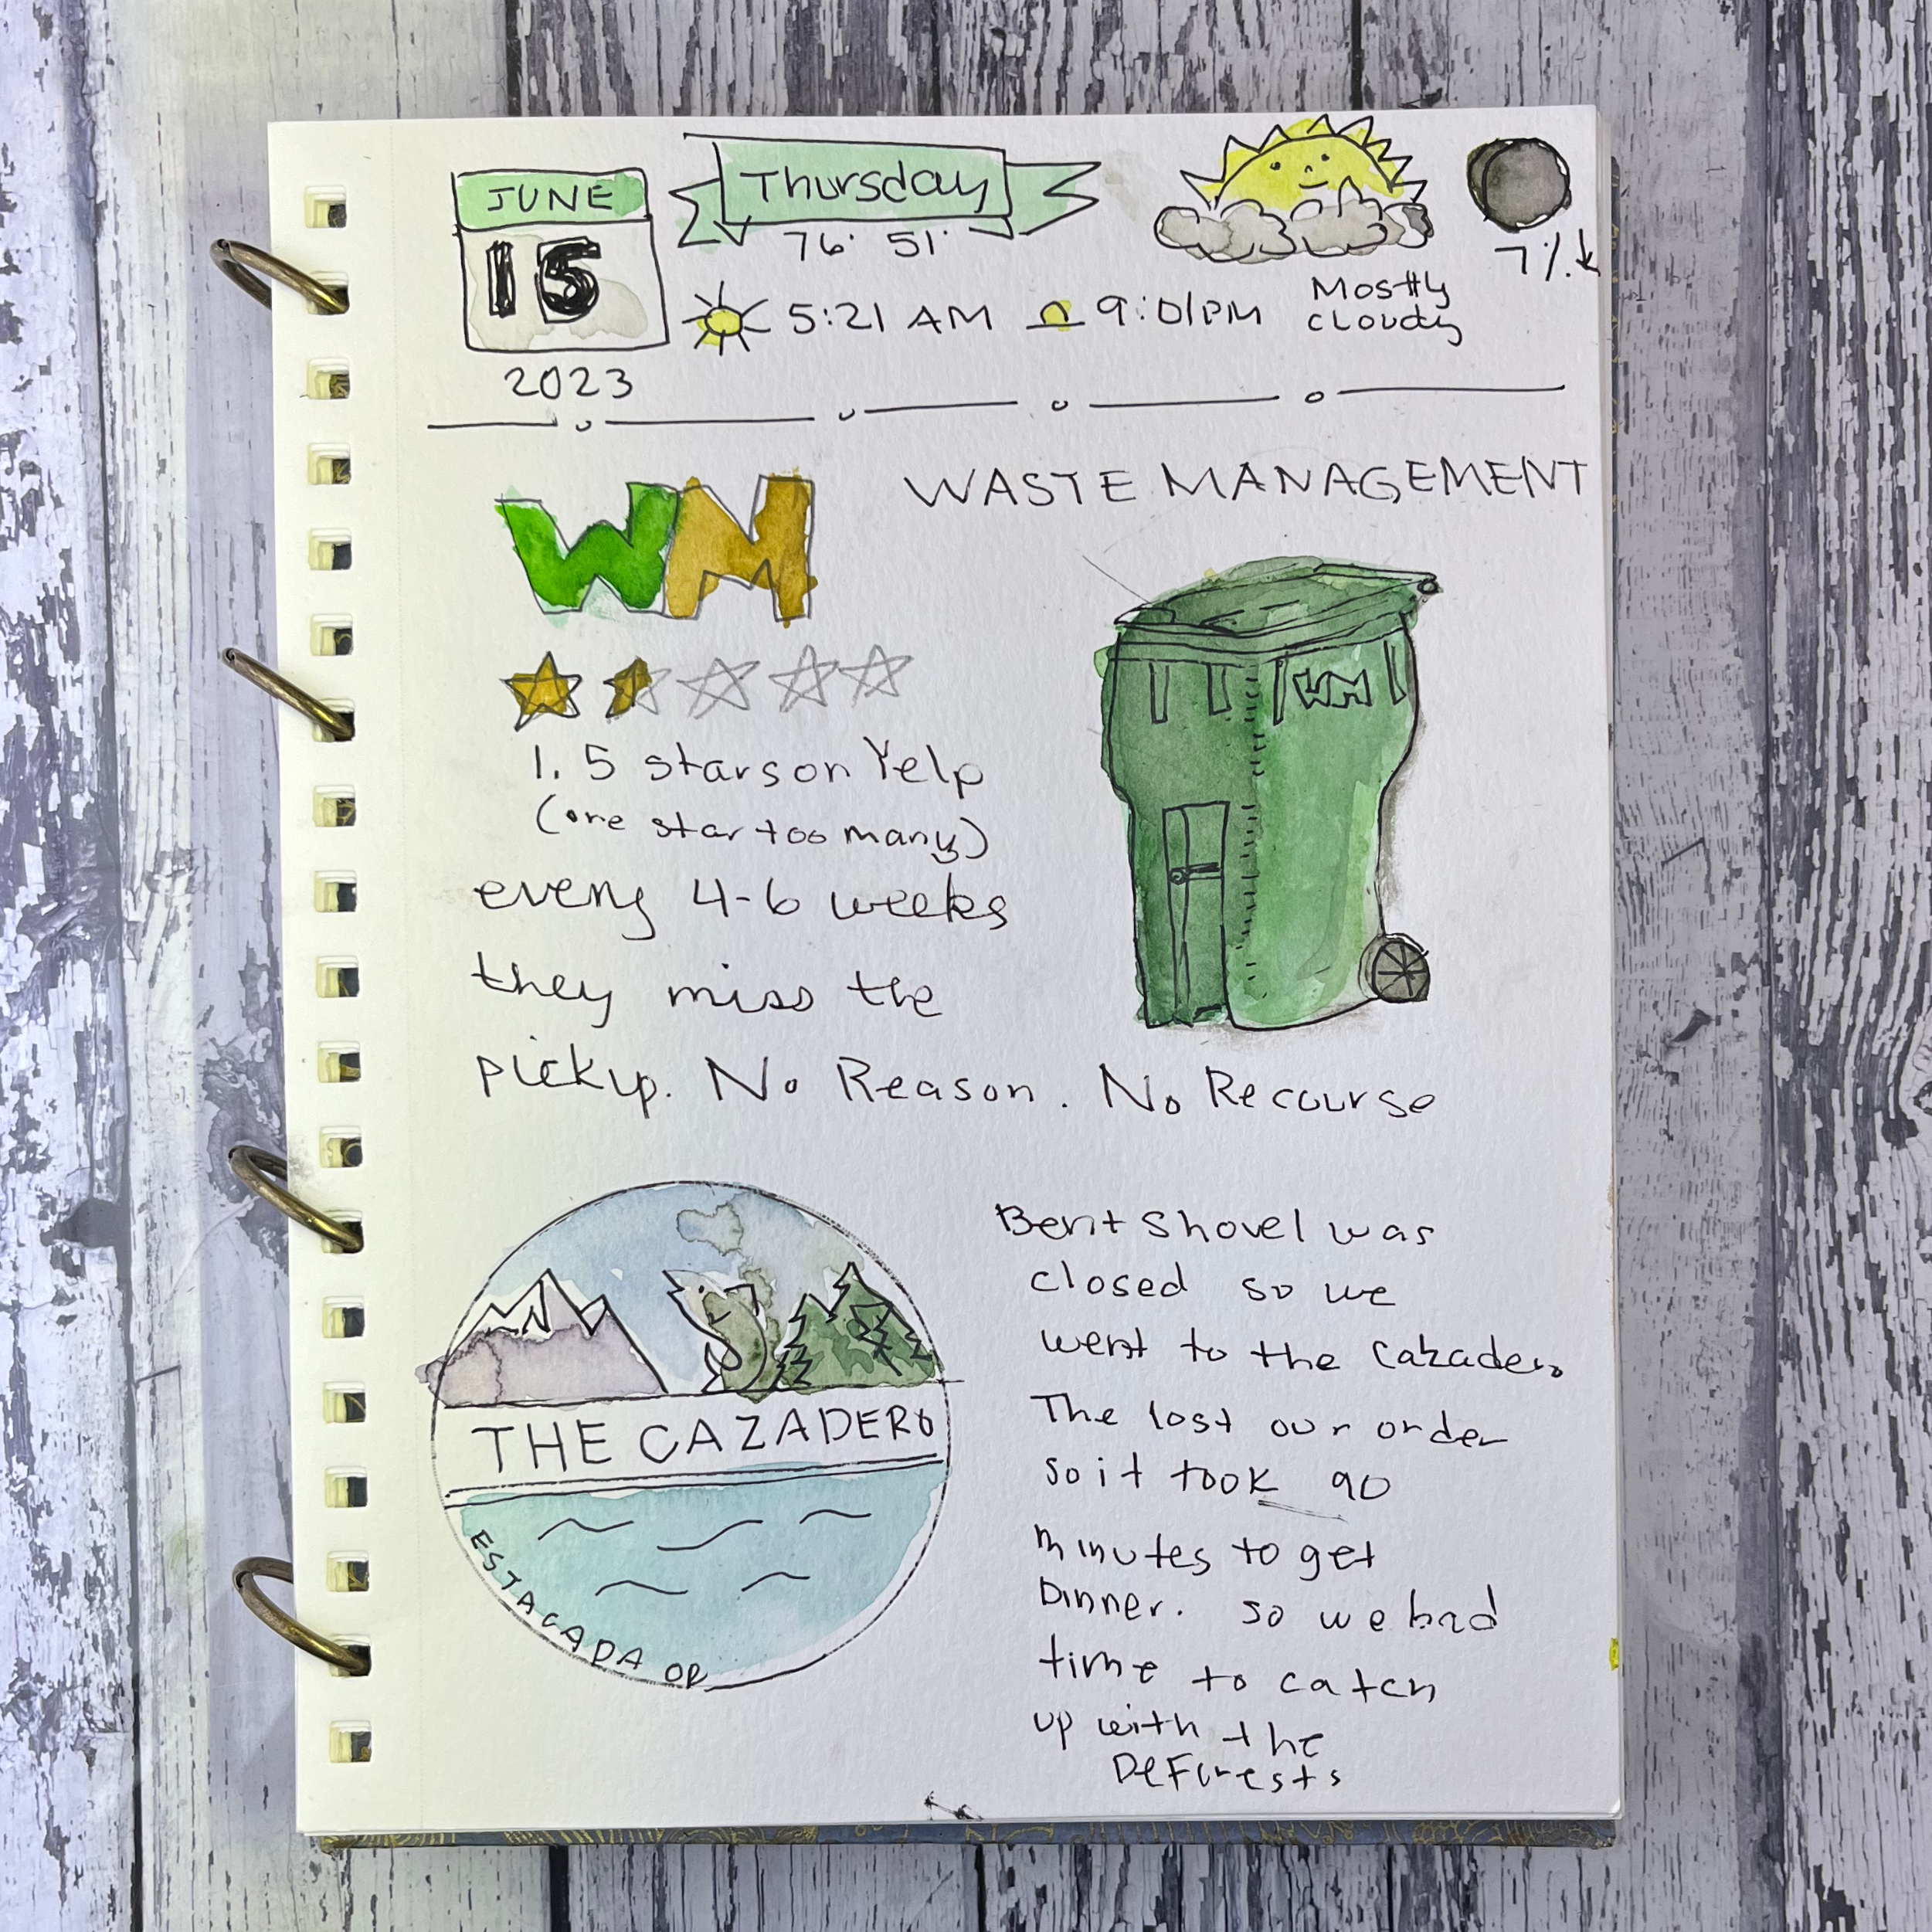 JUNE
15
2023
Thursday
76° 51°
5:21 AM 9:01PM
Mostly
cloudy
7%↓
WM
WASTE MANAGEMENT
WM
1.5 stars on Yelp
(one star too many)
every 4-6 weeks
they miss the
pickup. No Reason. No Recourse
THE CAZADERO
ESTACADA OR
Bent Shovel was
closed so we
went to the Cazadero
The lost our order
so it took 90
minutes to get
Dinner. so we had
time to catch
up with the
DeForests